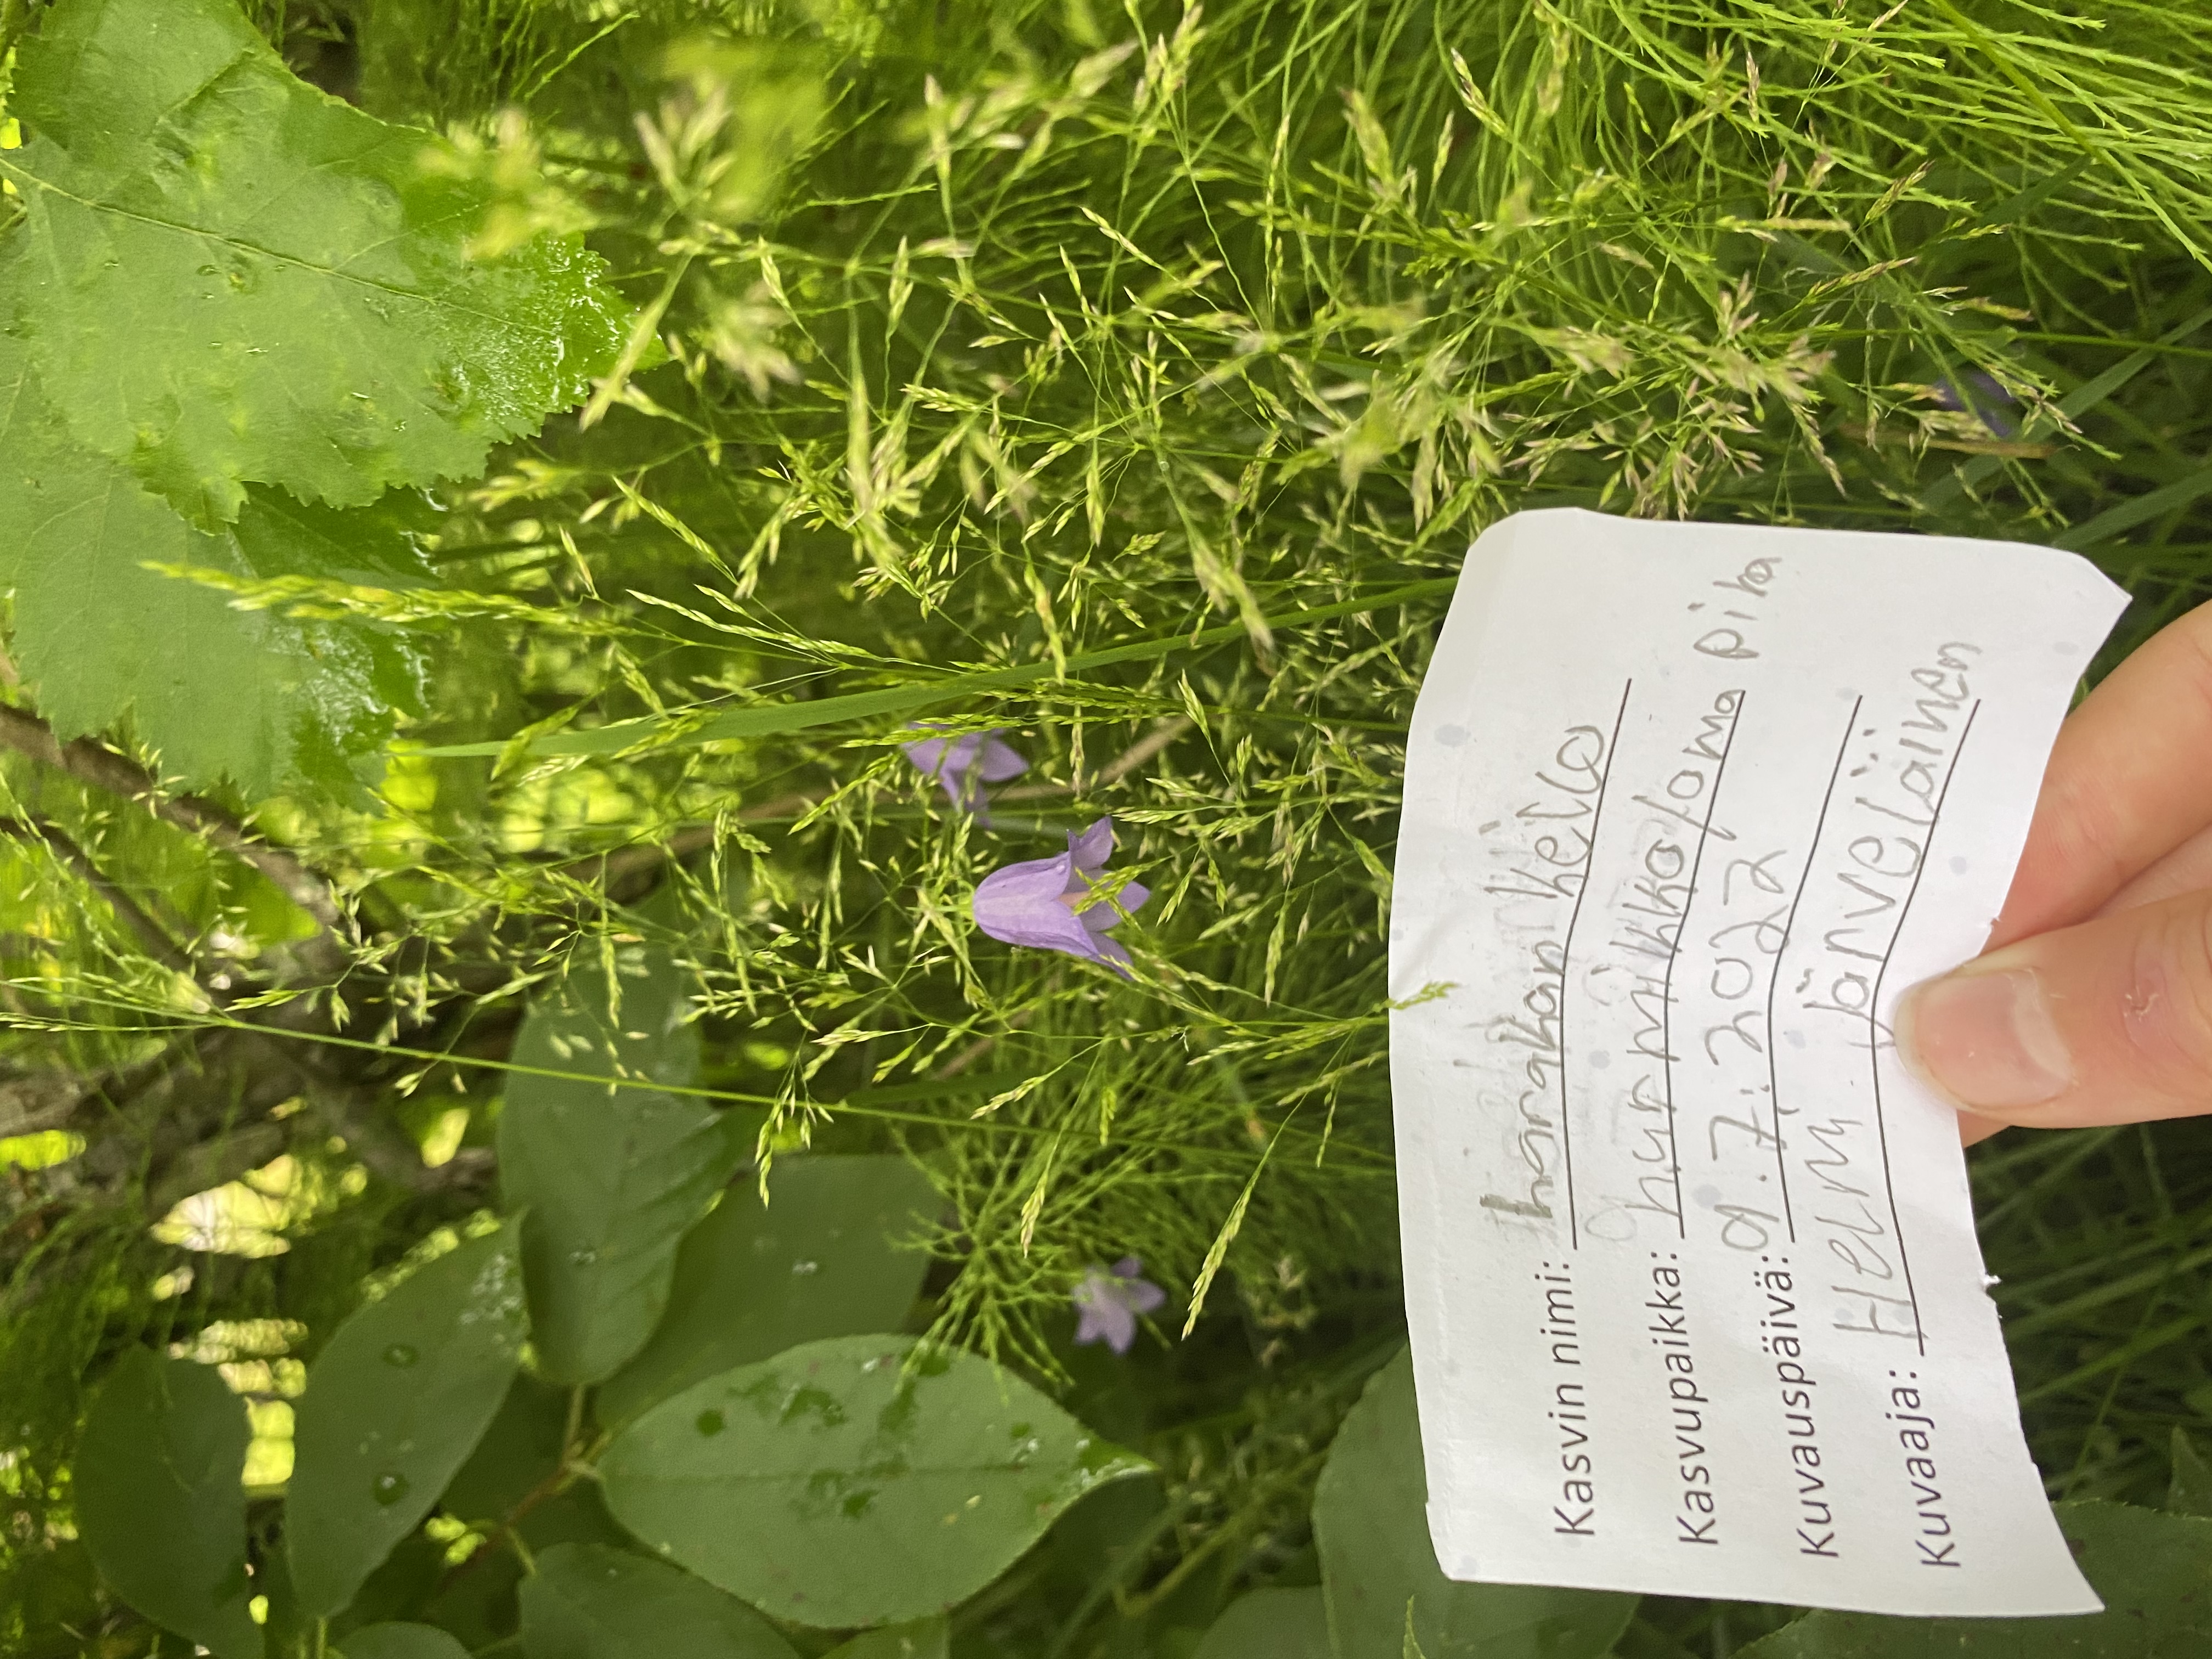 Kasvin nimi: harakankello
Kasvupaikka: nurmikko/oma piha
Kuvauspäivä: 9.7.2022
Kuvaaja: Helmi Järveläinen